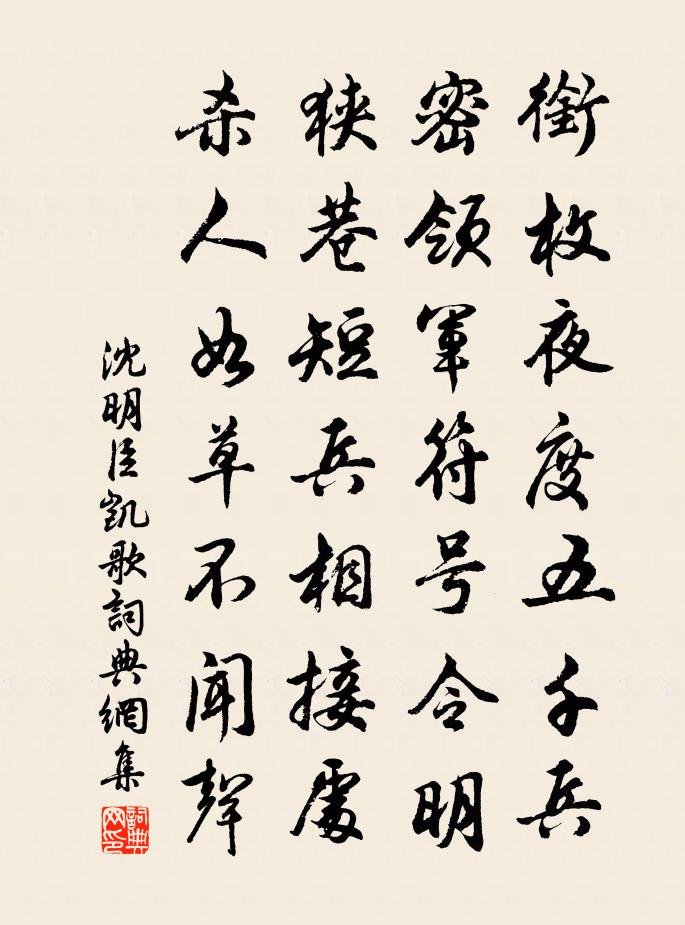 銜枚夜度五千兵
密領軍符号令明
狹巷短兵相接處
杀人如草不闻聲
沈明臣凱歌詞典網集
詞典网印